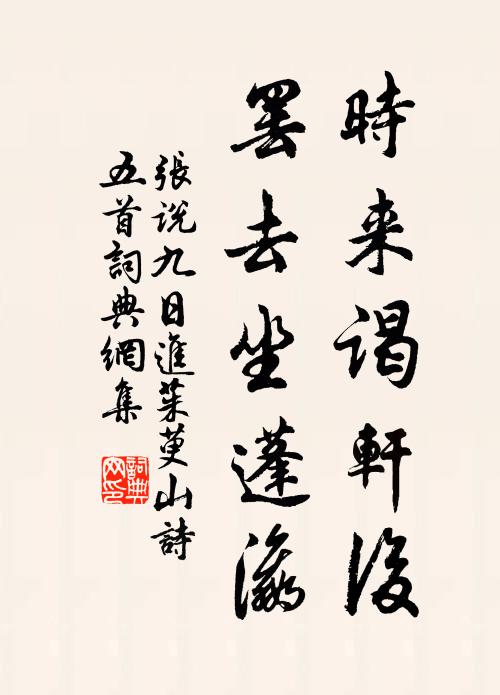 時来謁軒後
罷去坐蓬瀛
張説九日進茱萸山詩
五首詞典網集
詞典网印